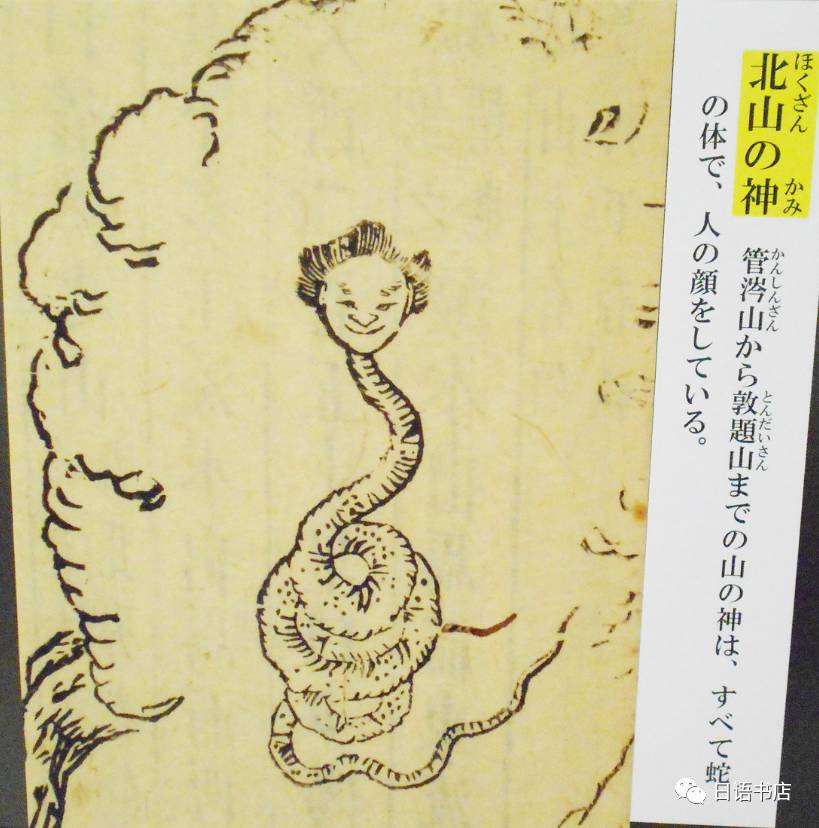 北山の神
ほくざん
かみ
管涔山から敦題山までの山の神は、すべて蛇
かんしんざん
とんだいさん
の体で、人の顔をしている。
日语书店